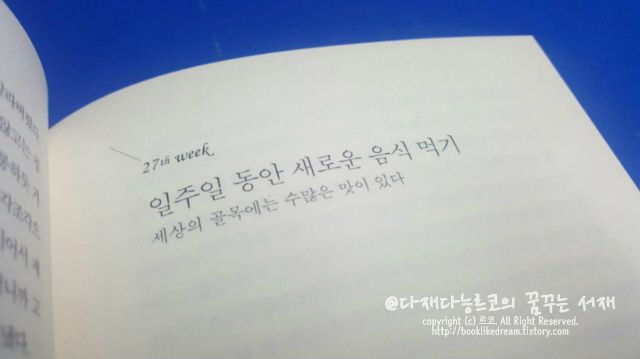 27th week
일주일 동안 새로운 음식 먹기
세상의 골목에는 수많은 맛이 있다
@다재다능르코의 꿈꾸는 서재
copyright (c) 르코. All Right Reserved.
http://booklikedream.tistory.com